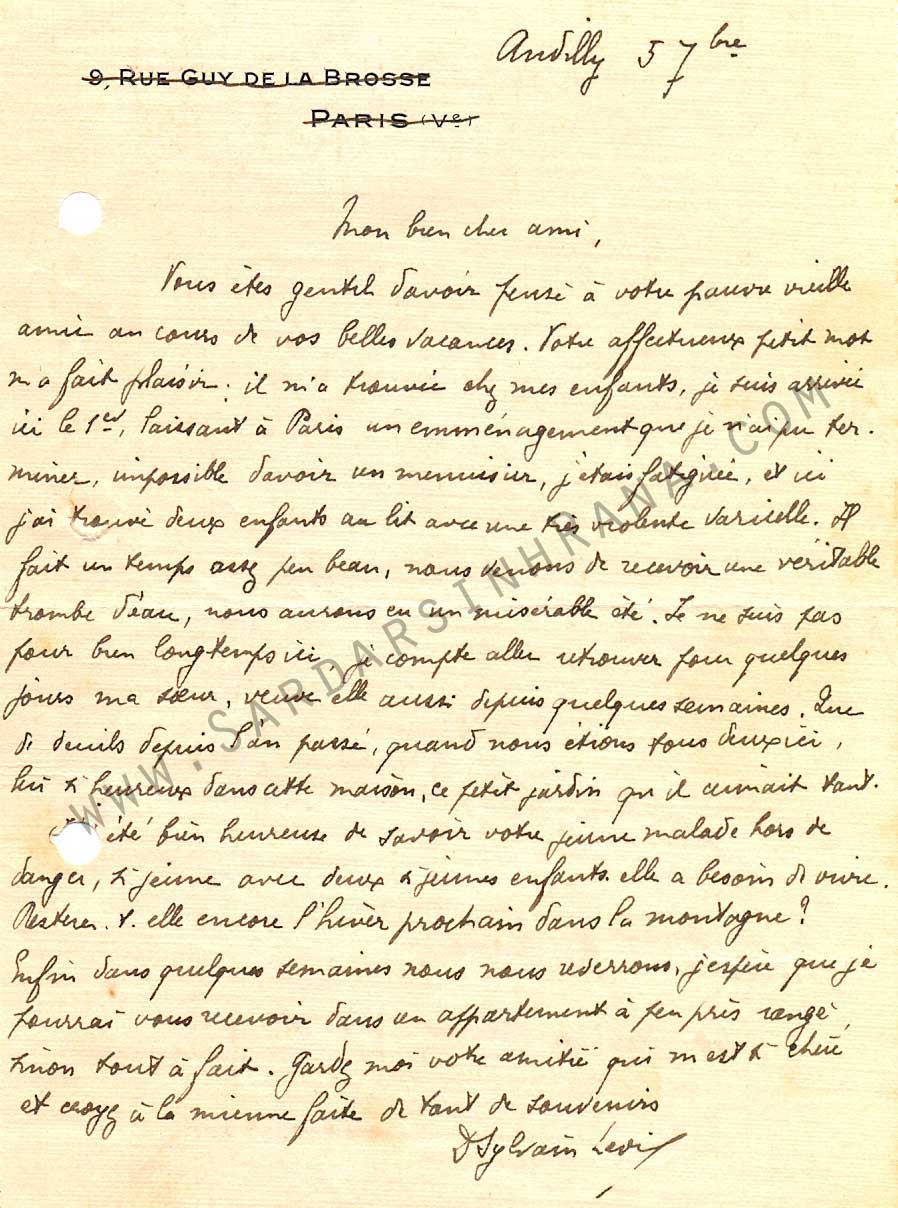 Andilly 5 7bre
9, RUE GUY DE LA BROSSE
PARIS (Ve)
Mon bien cher ami,
Vous êtes gentil d'avoir pensé à votre pauvre vieille
amie au cours de vos belles vacances. Votre affectueux petit mot
m'a fait plaisir. il m'a trouvée chez mes enfants, je suis arrivée
ici le 1er, laissant à Paris un emménagement que je n'ai pu ter-
miner, impossible d'avoir un menuisier, j'étais fatiguée, et ici
j'ai trouvé deux enfants au lit avec une très violente varicelle. Il
fait un temps assez peu beau, nous venons de recevoir une véritable
trombe d'eau, nous aurons eu un misérable été. Je ne suis pas
pour bien longtemps ici, je compte aller retrouver pour quelques
jours ma sœur, veuve elle aussi depuis quelques semaines. Que
de deuils depuis l'an passé, quand nous étions tous deux ici,
lui si heureux dans cette maison, ce petit jardin qu'il aimait tant.
J'ai été bien heureuse de savoir votre jeune malade hors de
danger, si jeune avec deux si jeunes enfants. elle a besoin de vivre.
Restera-t-elle encore l'hiver prochain dans la montagne?
Enfin dans quelques semaines nous nous reverrons, j'espère que je
pourrai vous recevoir dans un appartement à peu près rangé,
sinon tout à fait. Gardez moi votre amitié qui m'est si chère
et croyez à la mienne faite de tant de souvenirs
D Sylvain Levi
WWW.SARDARSINHRANA.COM